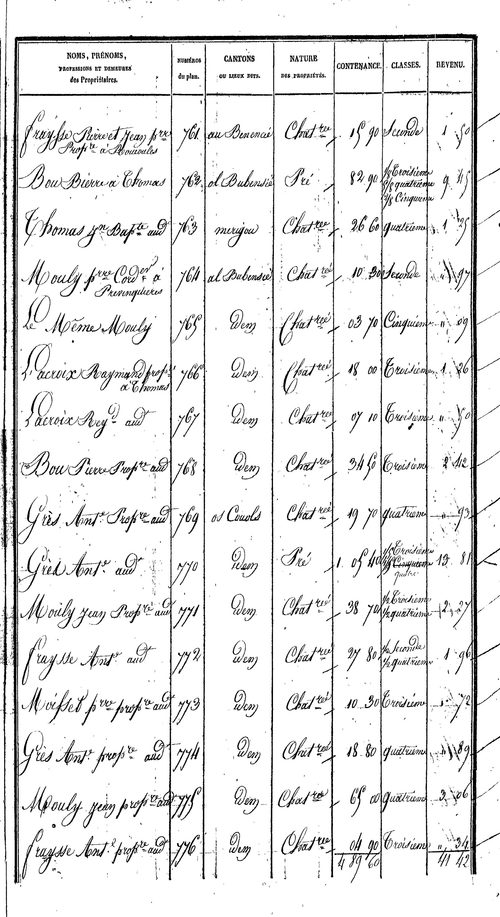 NOMS, PRÉNOMS, PROFESSIONS ET DEMEURES des Propriétaires. | NUMÉROS du plan. | CANTONS OU LIEUX DITS. | NATURE DES PROPRIÉTÉS. | CONTENANCE. | CLASSES. | REVENU.
Fraysse Pierre et Jean prre | 761 | au Benencié | Chatre | 15 90 | Seconde | 1 50
Propre à
Bou Pierre à Thomas | 762 | al Bubensié | Pré | 82 90 | 1/3 Troisième 1/3 quatrième 1/3 Cinquième | 9 45
Thomas Jn Bapte audt | 763 | merigou | Chatre | 26 60 | quatrième | 1 25
Mouly prre Cordr à | 764 | al Bubensié | Chatre | 10 30 | Seconde | " 97
Prevenquieres
Le Même Mouly | 765 | idem | Chatre | 03 70 | Cinquième | " 09
Lacroix Raymond propre | 766 | idem | Chatre | 18 00 | Troisième | 1 26
à Thomas
Lacroix Reyd audt | 767 | idem | Chatre | 07 10 | Troisième | " 50
Bou Pierre Propre audt | 768 | idem | Chatre | 34 50 | Troisième | 2 42
Grès Ante Propre audt | 769 | os Couols | Chatre | 19 70 | quatrième | " 93
Grès Ante audt | 770 | idem | Pré | 1 05 40 | 1/2 Troisième 1/2 Cinquième | 13 81
Mouly Jean Propre audt | 771 | idem | Chatre | 38 70 | 1/2 Troisième 1/2 quatrième | 2 27
Fraysse Ante audt | 772 | idem | Chatre | 27 80 | 1/2 Seconde 1/2 quatrième | 1 96
Moisset prre propre audt | 773 | idem | Chatre | 10 30 | Troisième | " 72
Grès Ante propre audt | 774 | idem | Chatre | 18 80 | quatrième | " 89
Mouly Jean propre audt | 775 | idem | Chatre | 65 00 | quatrième | 3 06
Fraysse Ante propre audt | 776 | idem | Chatre | 04 90 | Troisième | " 34
4 89 60 | 41 42